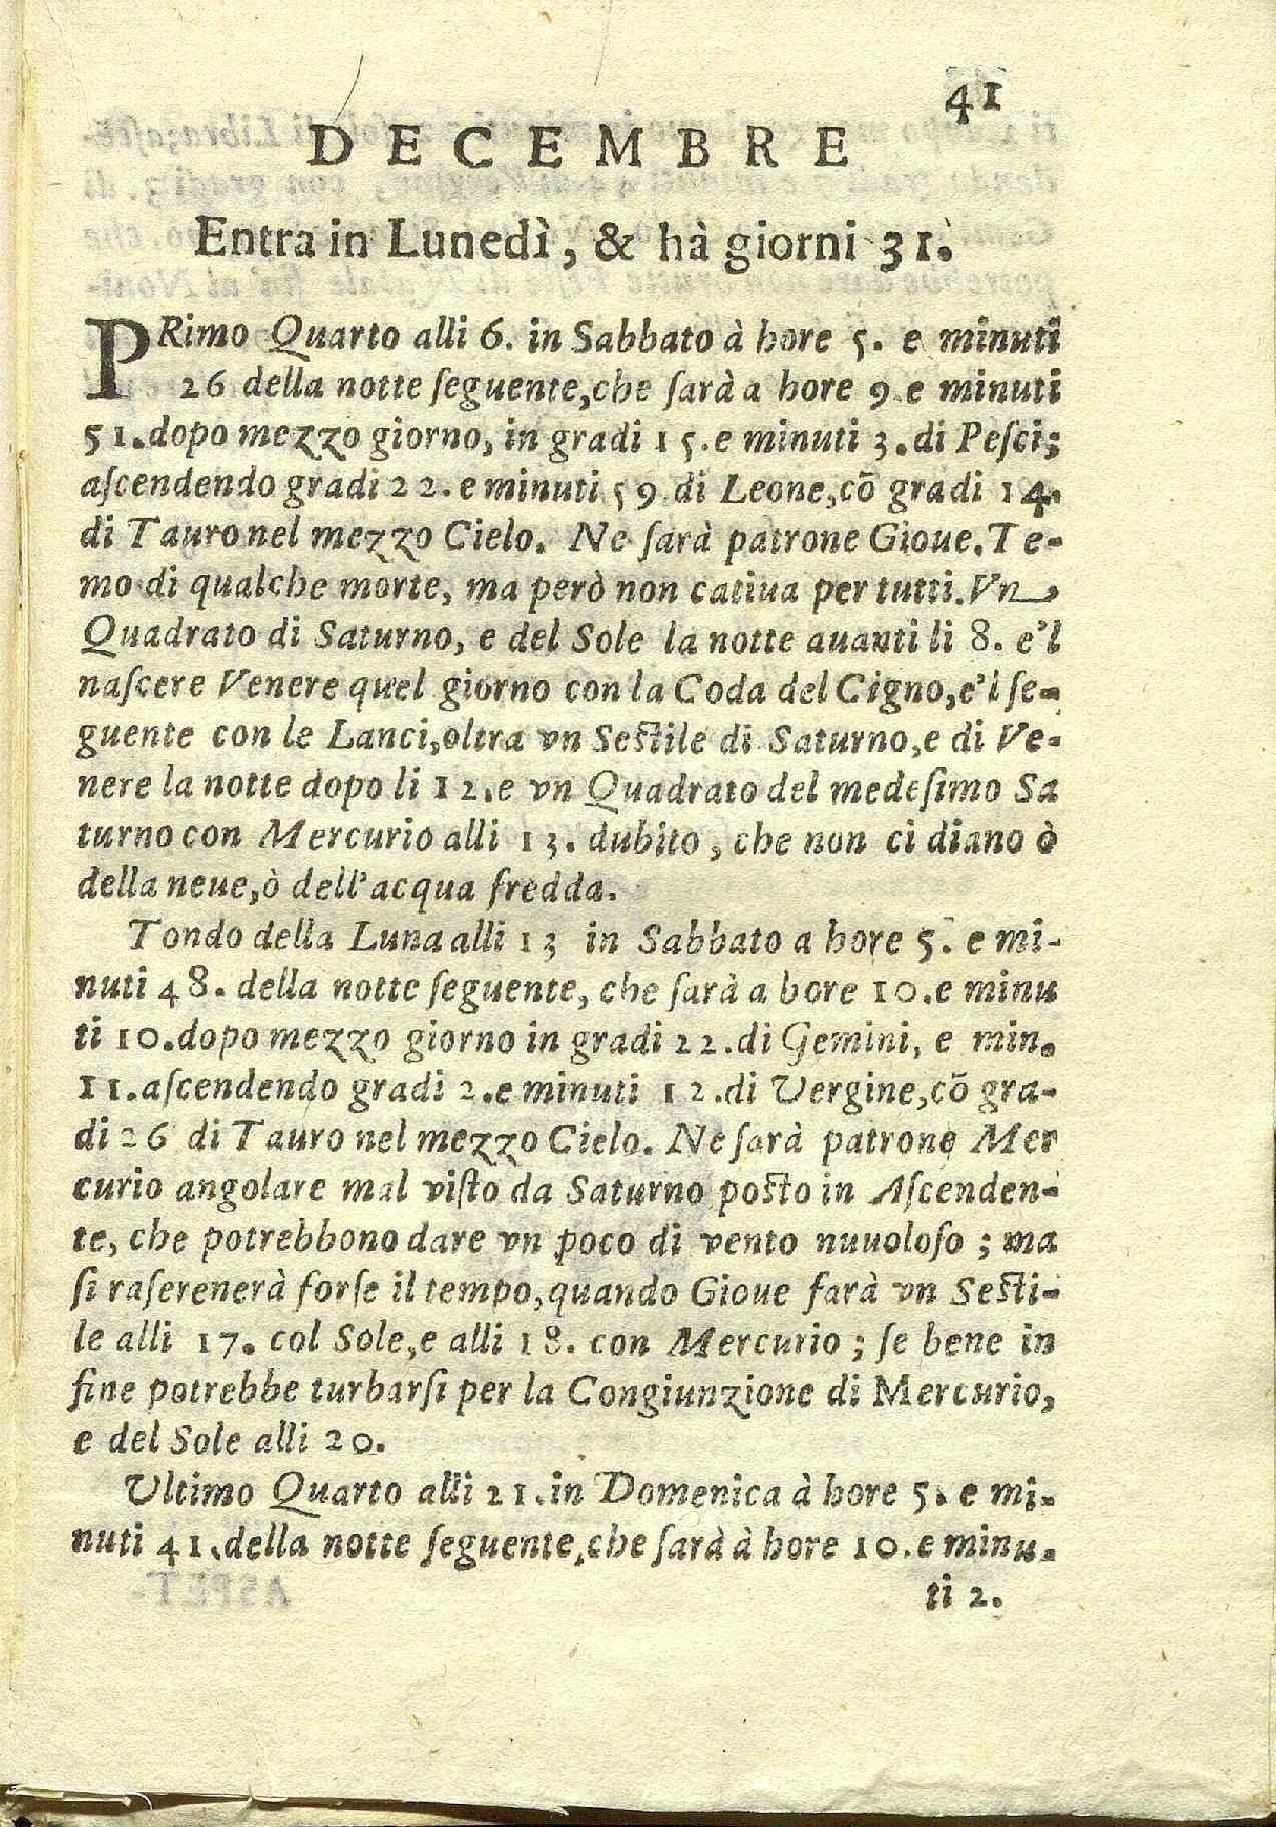 41
DECEMBRE
Entra in Lunedì, & hà giorni 31.
PRimo Quarto alli 6. in Sabbato à hore 5. e minuti
26 della notte ſeguente, che ſarà a hore 9 e minuti
51. dopo mezzo giorno, in gradi 15. e minuti 3. di Peſci;
aſcendendo gradi 22. e minuti 59 di Leone, cō gradi 14.
di Tauro nel mezzo Cielo. Ne ſarà patrone Gioue. Te-
mo di qualche morte, ma però non catiua per tutti. Vn
Quadrato di Saturno, e del Sole la notte auanti li 8. e'l
naſcere Venere quel giorno con la Coda del Cigno, e'l ſe-
guente con le Lanci, oltra vn Seſtile di Saturno, e di Ve-
nere la notte dopo li 12. e vn Quadrato del medeſimo Sa
turno con Mercurio alli 13. dubito, che non ci diano ò
della neue, ò dell'acqua fredda.
Tondo della Luna alli 13 in Sabbato a hore 5. e mi-
nuti 48. della notte ſeguente, che ſarà a hore 10. e minu
ti 10. dopo mezzo giorno in gradi 22. di Gemini, e min.
11. aſcendendo gradi 2. e minuti 12. di Vergine, cō gra-
di 26 di Tauro nel mezzo Cielo. Ne ſarà patrone Mer
curio angolare mal viſto da Saturno poſto in Aſcenden-
te, che potrebbono dare vn poco di vento nuuoloſo; ma
ſi raſerenerà forſe il tempo, quando Gioue farà vn Seſti-
le alli 17. col Sole, e alli 18. con Mercurio; ſe bene in
fine potrebbe turbarſi per la Congiunzione di Mercurio,
e del Sole alli 20.
Ultimo Quarto alli 21. in Domenica à hore 5. e mi-
nuti 41. della notte ſeguente, che ſarà à hore 10. e minu-
ti 2.